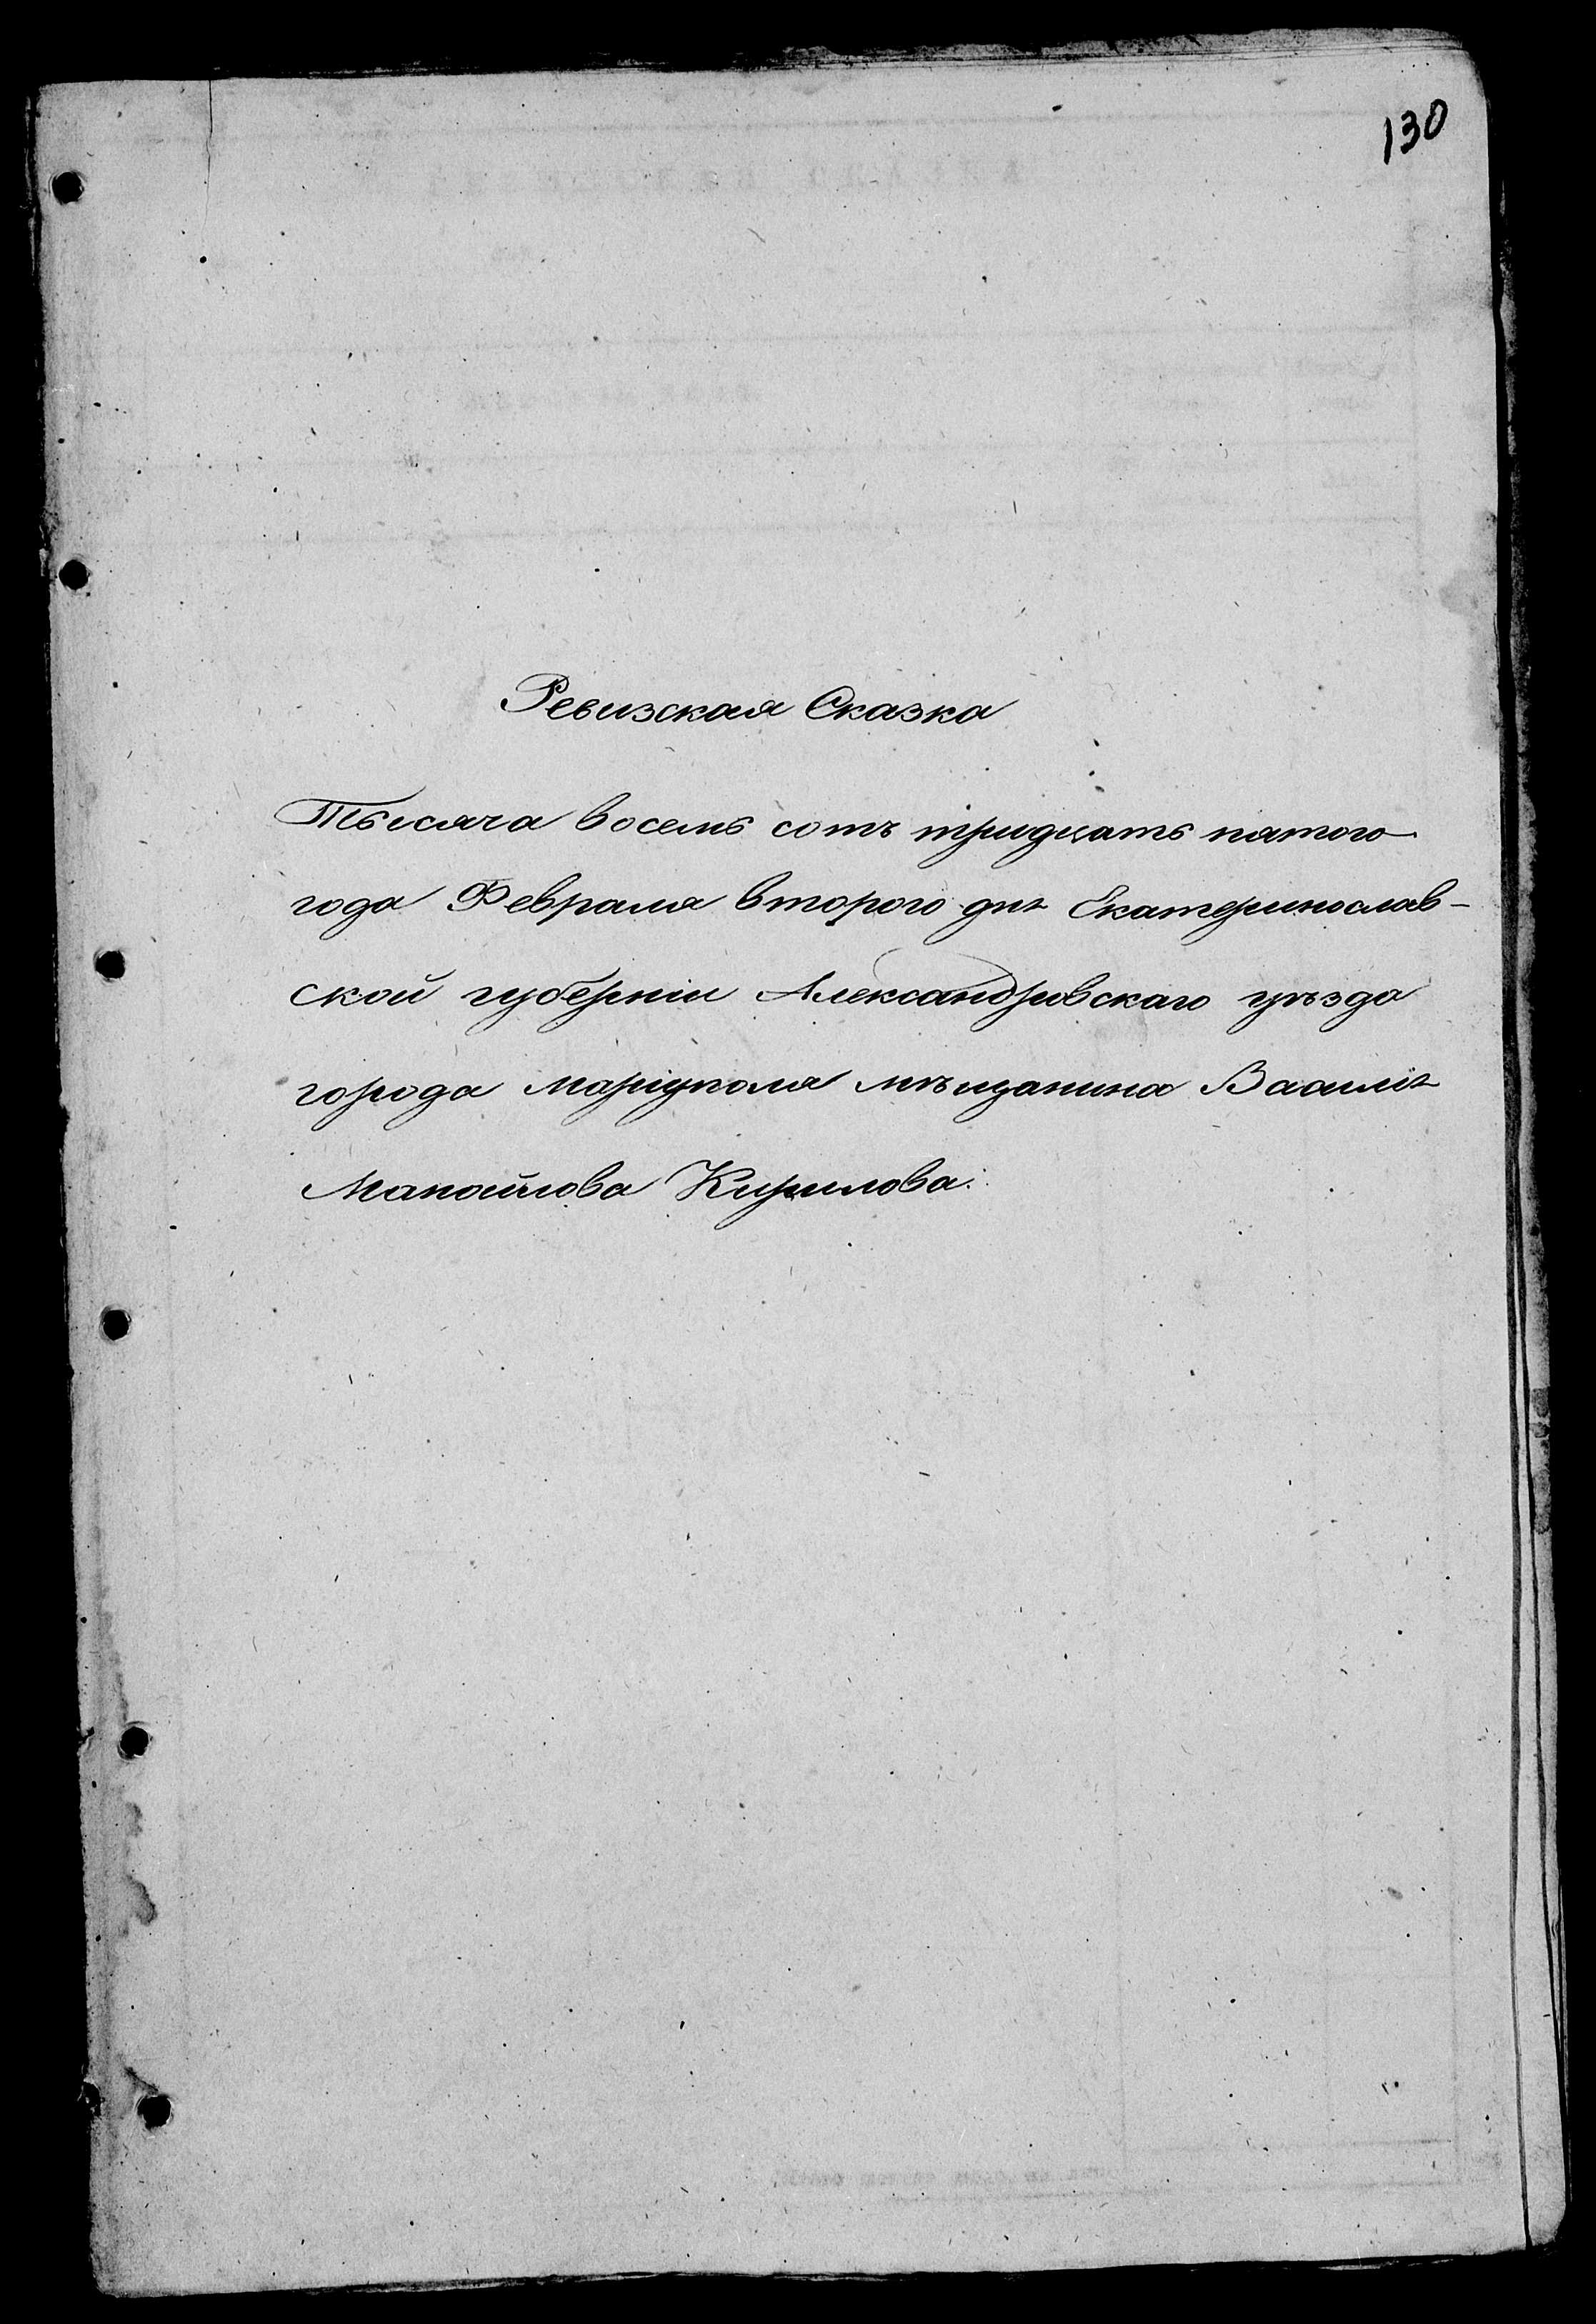 130
Ревизская Сказка
Тысяча восемь сотъ тридцать пятого
года Февраля второго дня Екатеринослав-
ской губерніи Александровскаго уѣзда
города Маріуполя мѣщанина Василія
Манойлова Кирилова.